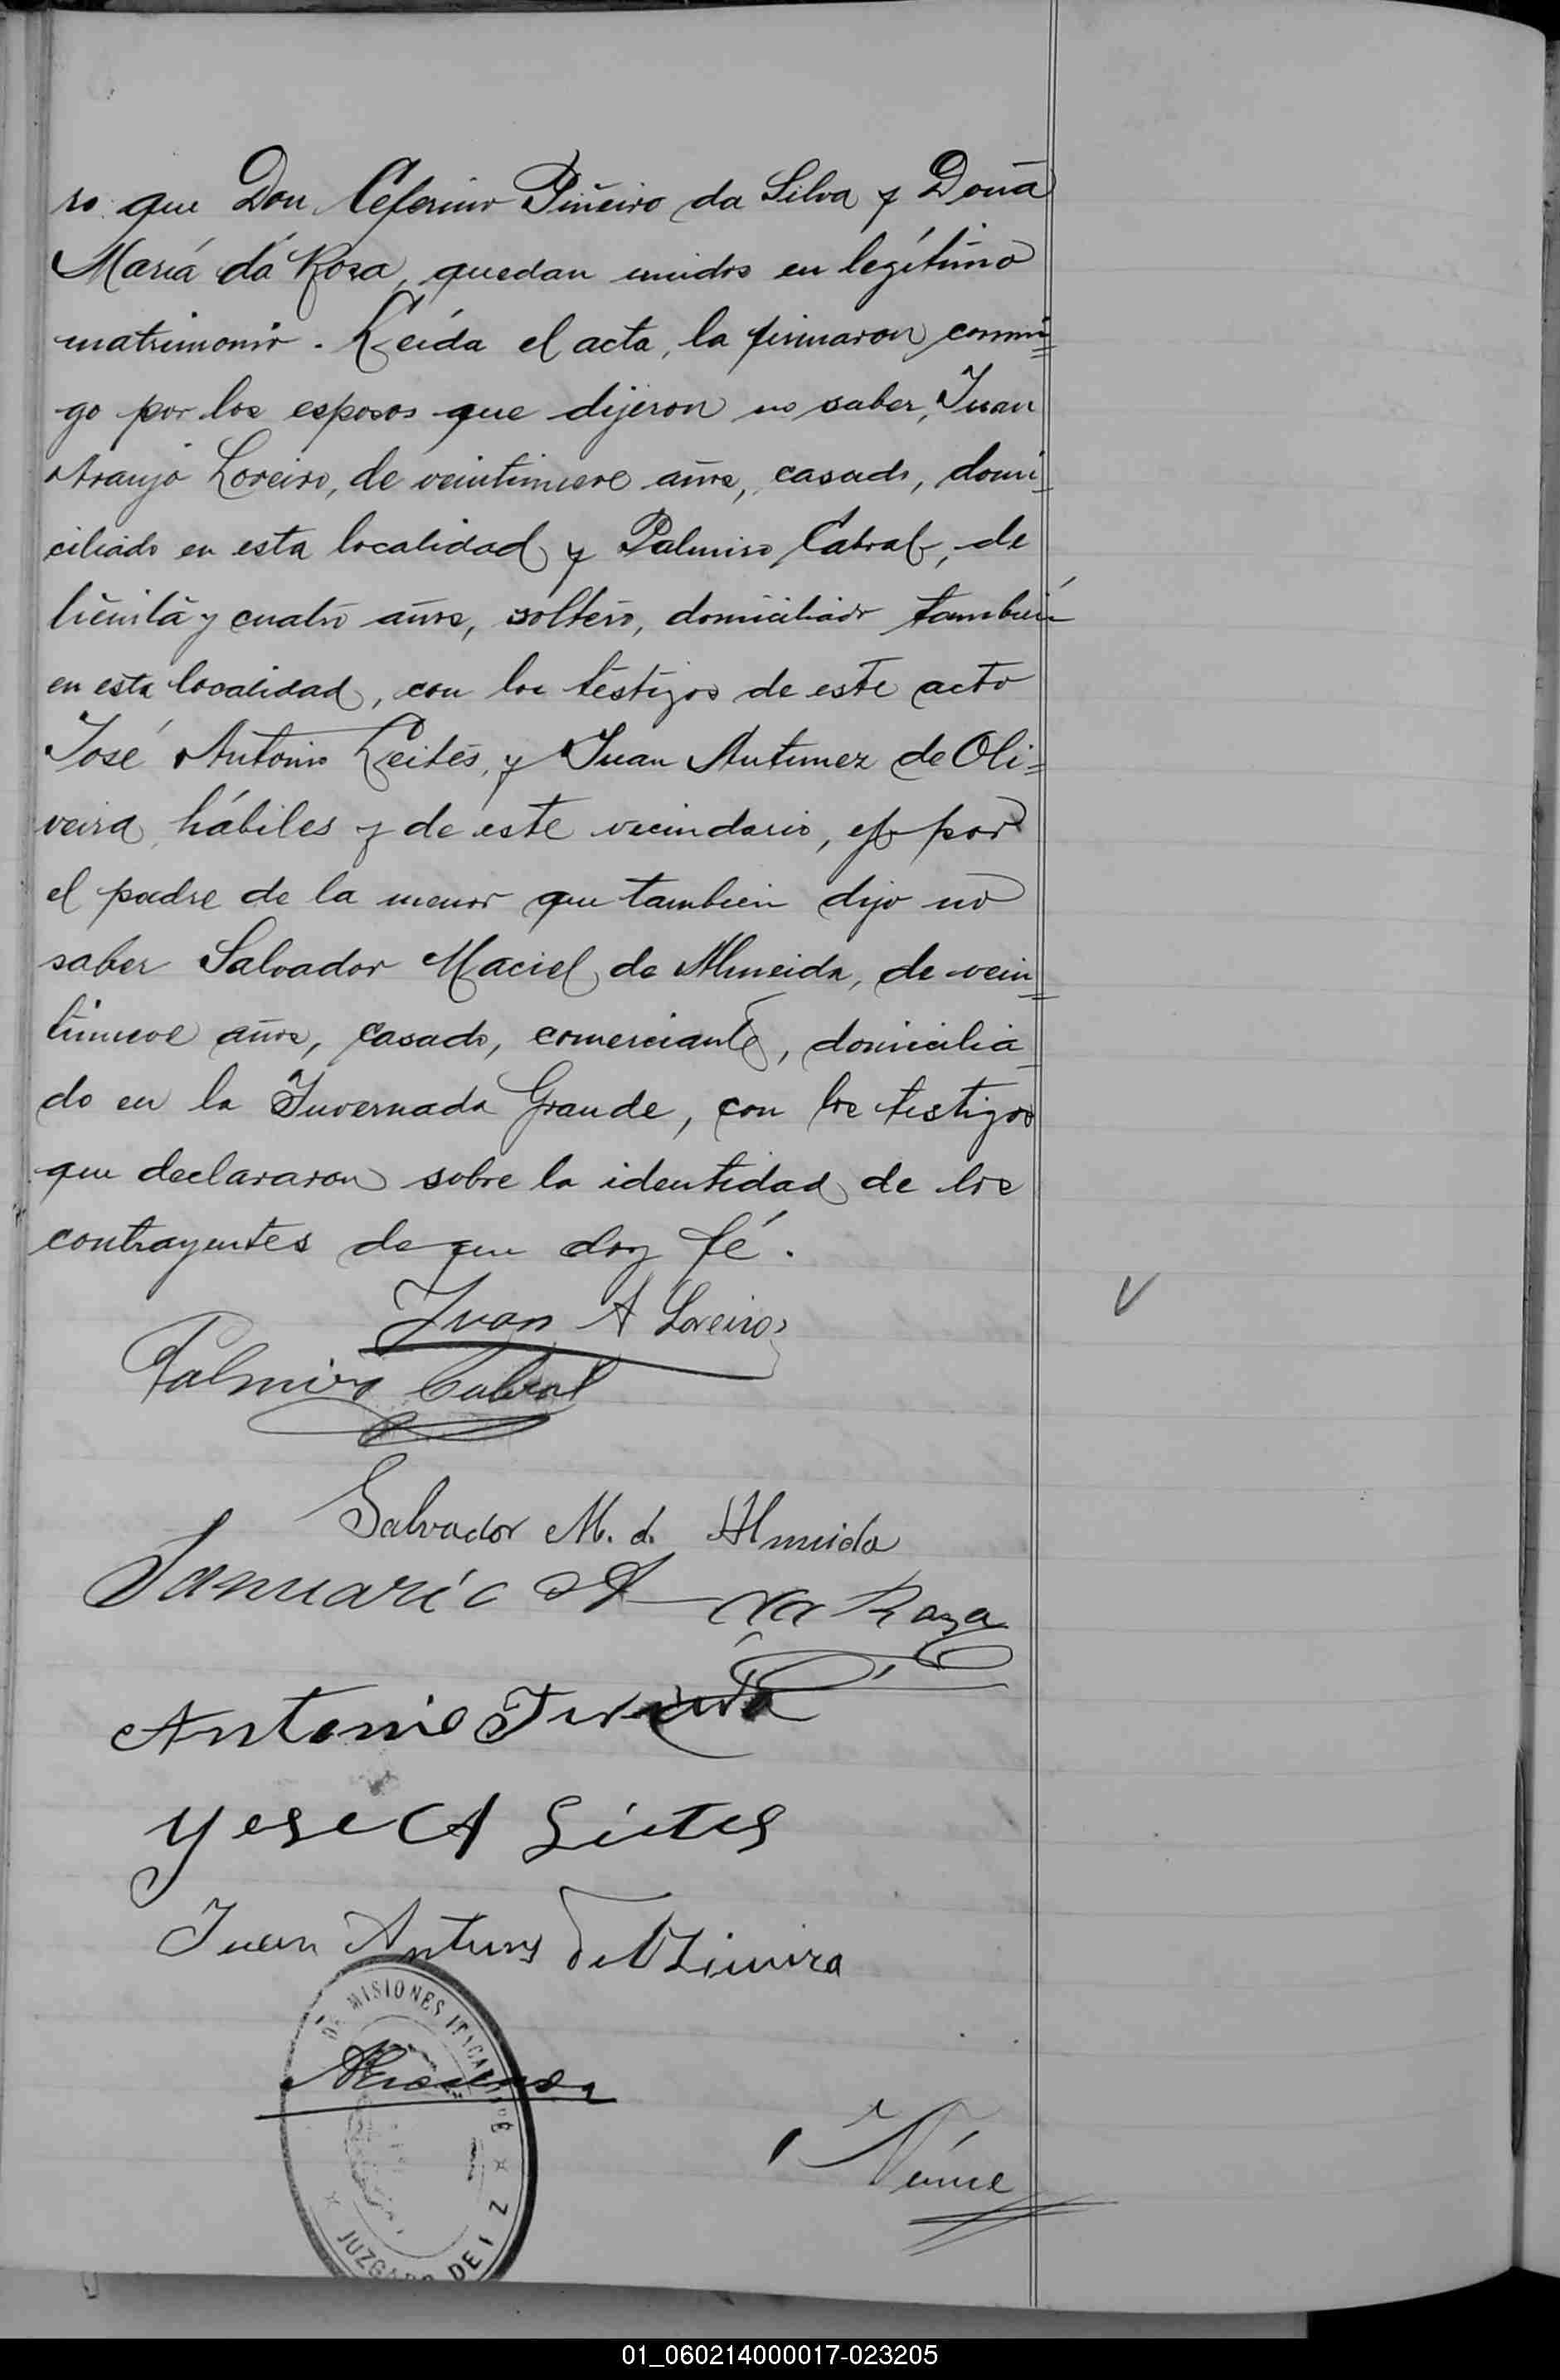 ro que Don Ceferino Piñeiro da Silva y Doña
María da Rosa, quedan unidos en legítimo
matrimonio. Leída el acta, la firmaron conmi=
go por los esposos que dijeron no saber, Juan
Araujo Loreiro, de veintinueve años, casado, domi-
ciliado en esta localidad y Palmiro Cabral, de
treinta y cuatro años, soltero, domiciliado también
en esta localidad, con los testigos de este acto
José Antonio Leites, y Juan Antunez de Oli=
veira, hábiles y de este vecindario, y por
el padre de la menor que tambien dijo no
saber Salvador Maciel de Almeida, de vein=
tinueve años, casado, comerciante, domicilia-
do en la Invernada Grande, con los testigos
que declararon sobre la identidad de los
contrayentes de que doy fé.
Juan A Loreiro
Palmiro Cabral
Salvador M. d. Almeida
Januario A da Roza
Antonio
Jose A Leites
Juan Antunes de
DE MISIONES ITACARUARÉ
JUZGADO DE
01_060214000017-023205